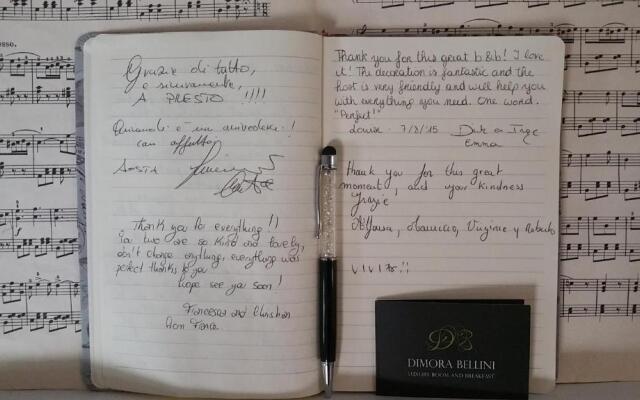 Grazie di tutto,
e sicuramente,
A PRESTO !!!!
Quindi è un arrivederci!
con affetto
AOSTA
Thank you for everything!)
You two are so kind and lovely,
don't change anything, everything was
perfect thanks to you
hope see you soon!
Francesca and Christian
from France
Thank you for this great b&b! I love
it! The decoration is fantastic and the
host is very friendly and will help you
with everything you need. One word.
"Perfect"
Louise. 7/8/15 Dirk & Inge
Emma
Thank you for this great
moment, and your kindness
Grazie
Mauricio, Virginie y Roberto
DB
DIMORA BELLINI
LUXURY ROOM AND BREAKFAST